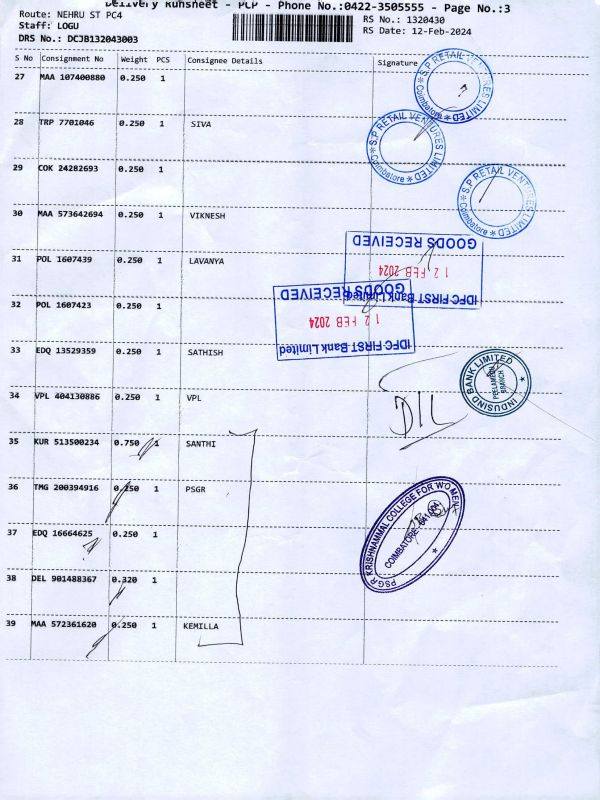 Delivery Runsheet - PCP - Phone No.:0422-3505555 - Page No.:3
Route: NEHRU ST PC4
RS No.: 1320430
Staff: LOGU
RS Date: 12-Feb-2024
DRS No.: DCJB132043003
S No Consignment No Weight PCS Consignee Details Signature
27 MAA 107400880 0.250 1
S.P RETAIL VENTURES LIMITED
Coimbatore
28 TRP 7701046 0.250 1 SIVA
S.P RETAIL VENTURES LIMITED
Coimbatore
29 COK 24282693 0.250 1
S.P RETAIL VENTURES LIMITED
Coimbatore
30 MAA 573642694 0.250 1 VIKNESH
31 POL 1607439 0.250 1 LAVANYA
IDFC FIRST Bank Limited
12 FEB 2024
GOODS RECEIVED
32 POL 1607423 0.250 1
IDFC FIRST Bank Limited
12 FEB 2024
GOODS RECEIVED
33 EDQ 13529359 0.250 1 SATHISH
INDUSIND BANK LIMITED
PEELAMEDU
BRANCH
34 VPL 404130886 0.250 1 VPL
35 KUR 513500234 0.750 1 SANTHI
36 TMG 200394916 0.250 1 PSGR
PSGR KRISHNAMMAL COLLEGE FOR WOMEN
COIMBATORE - 641 004
37 EDQ 16664625 0.250 1
38 DEL 901488367 0.320 1
39 MAA 572361620 0.250 1 KEMILLA